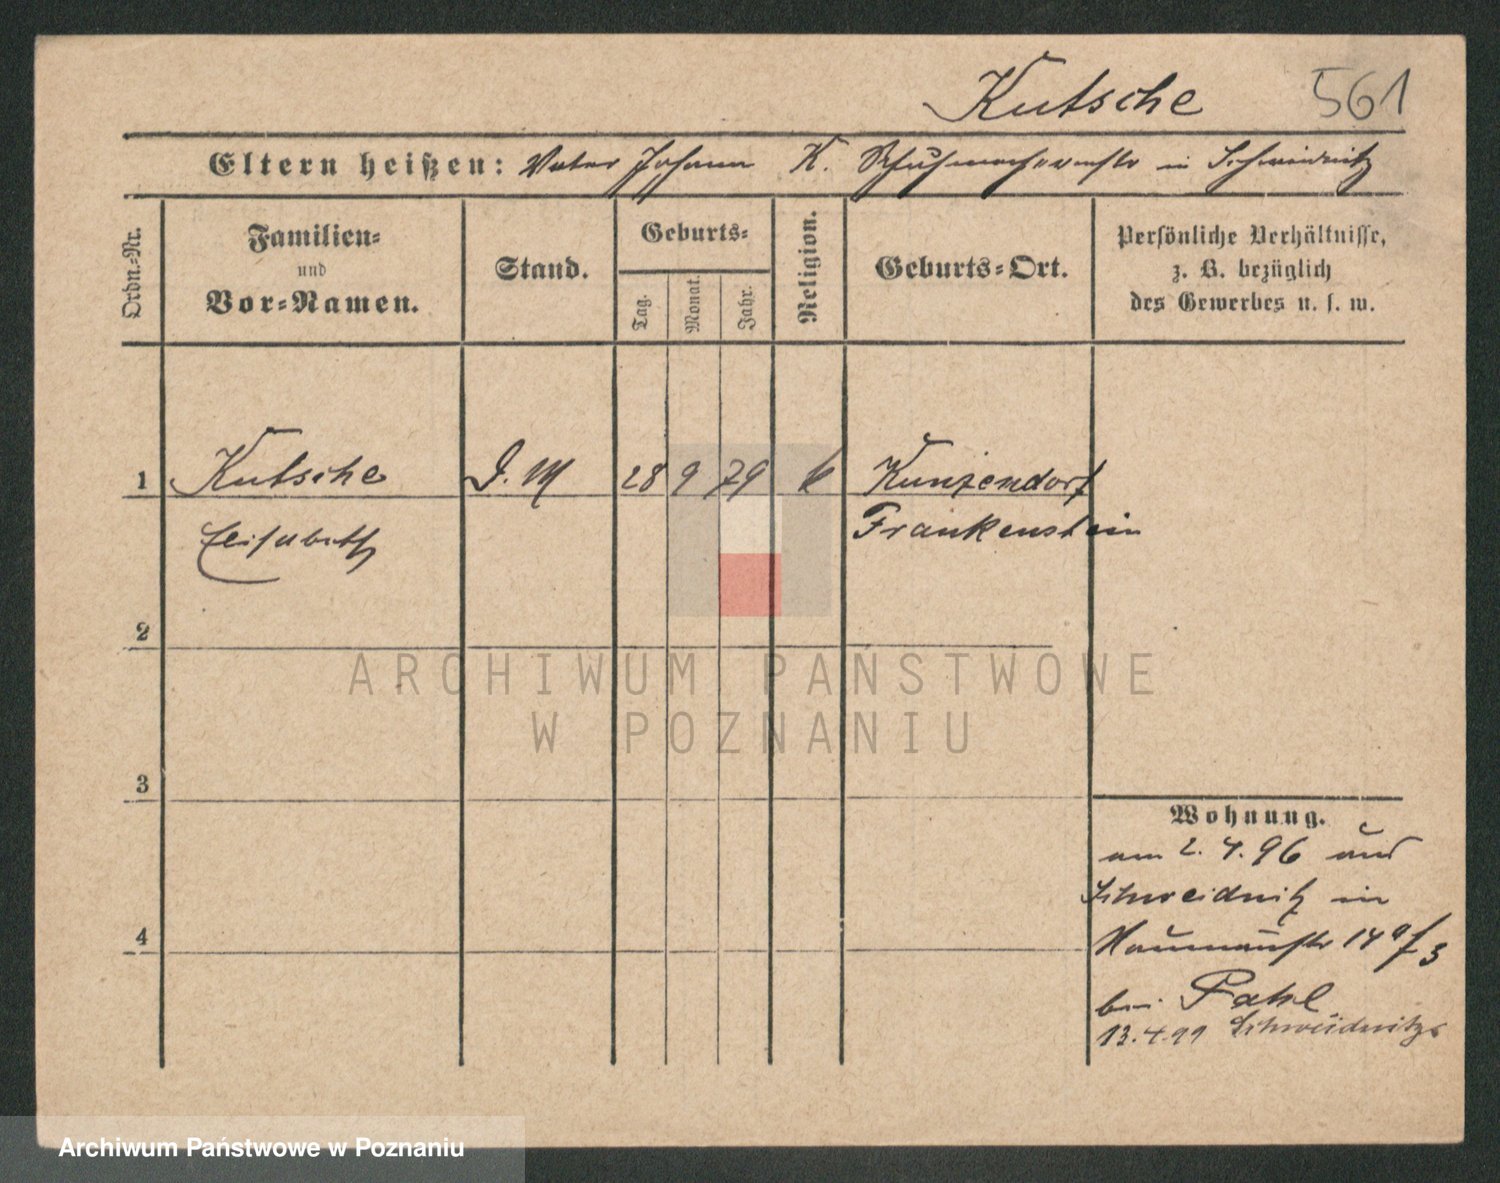 Kutsche 561
Eltern heißen: Vater Johann K. Schuhmachermstr in Schweidnitz
Ordn.=Nr.
Familien=
und
Vor=Namen.
Stand.
Geburts=
Tag.
Monat.
Jahr.
Religion.
Geburts=Ort.
Persönliche Verhältnisse,
z. B. bezüglich
des Gewerbes u. s. w.
1 Kutsche D. M 28 9 79 k Kunzendorf
Elisabeth Frankenstein
2
ARCHIWUM PAŃSTWOWE
W POZNANIU
3
Wohnung.
am 2. 4. 96 aus
Schweidnitz in
4
Naumannstr 14 /3
bei Pahl
13.4.99 Schweidnitz
Archiwum Państwowe w Poznaniu